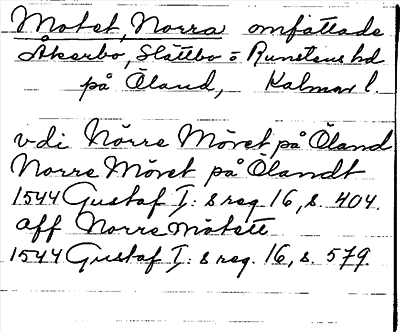 Motet, Norra omfattade
Åkerbo, Slättbo o Runstens hd
på Öland, Kalmar l.
vdi Nörre Mövet på Öland
Norre Mövet på Ölandt
1544 Gustaf I: s reg. 16, s. 404.
aff Norre motett
1544 Gustaf I: s reg. 16, s. 579.